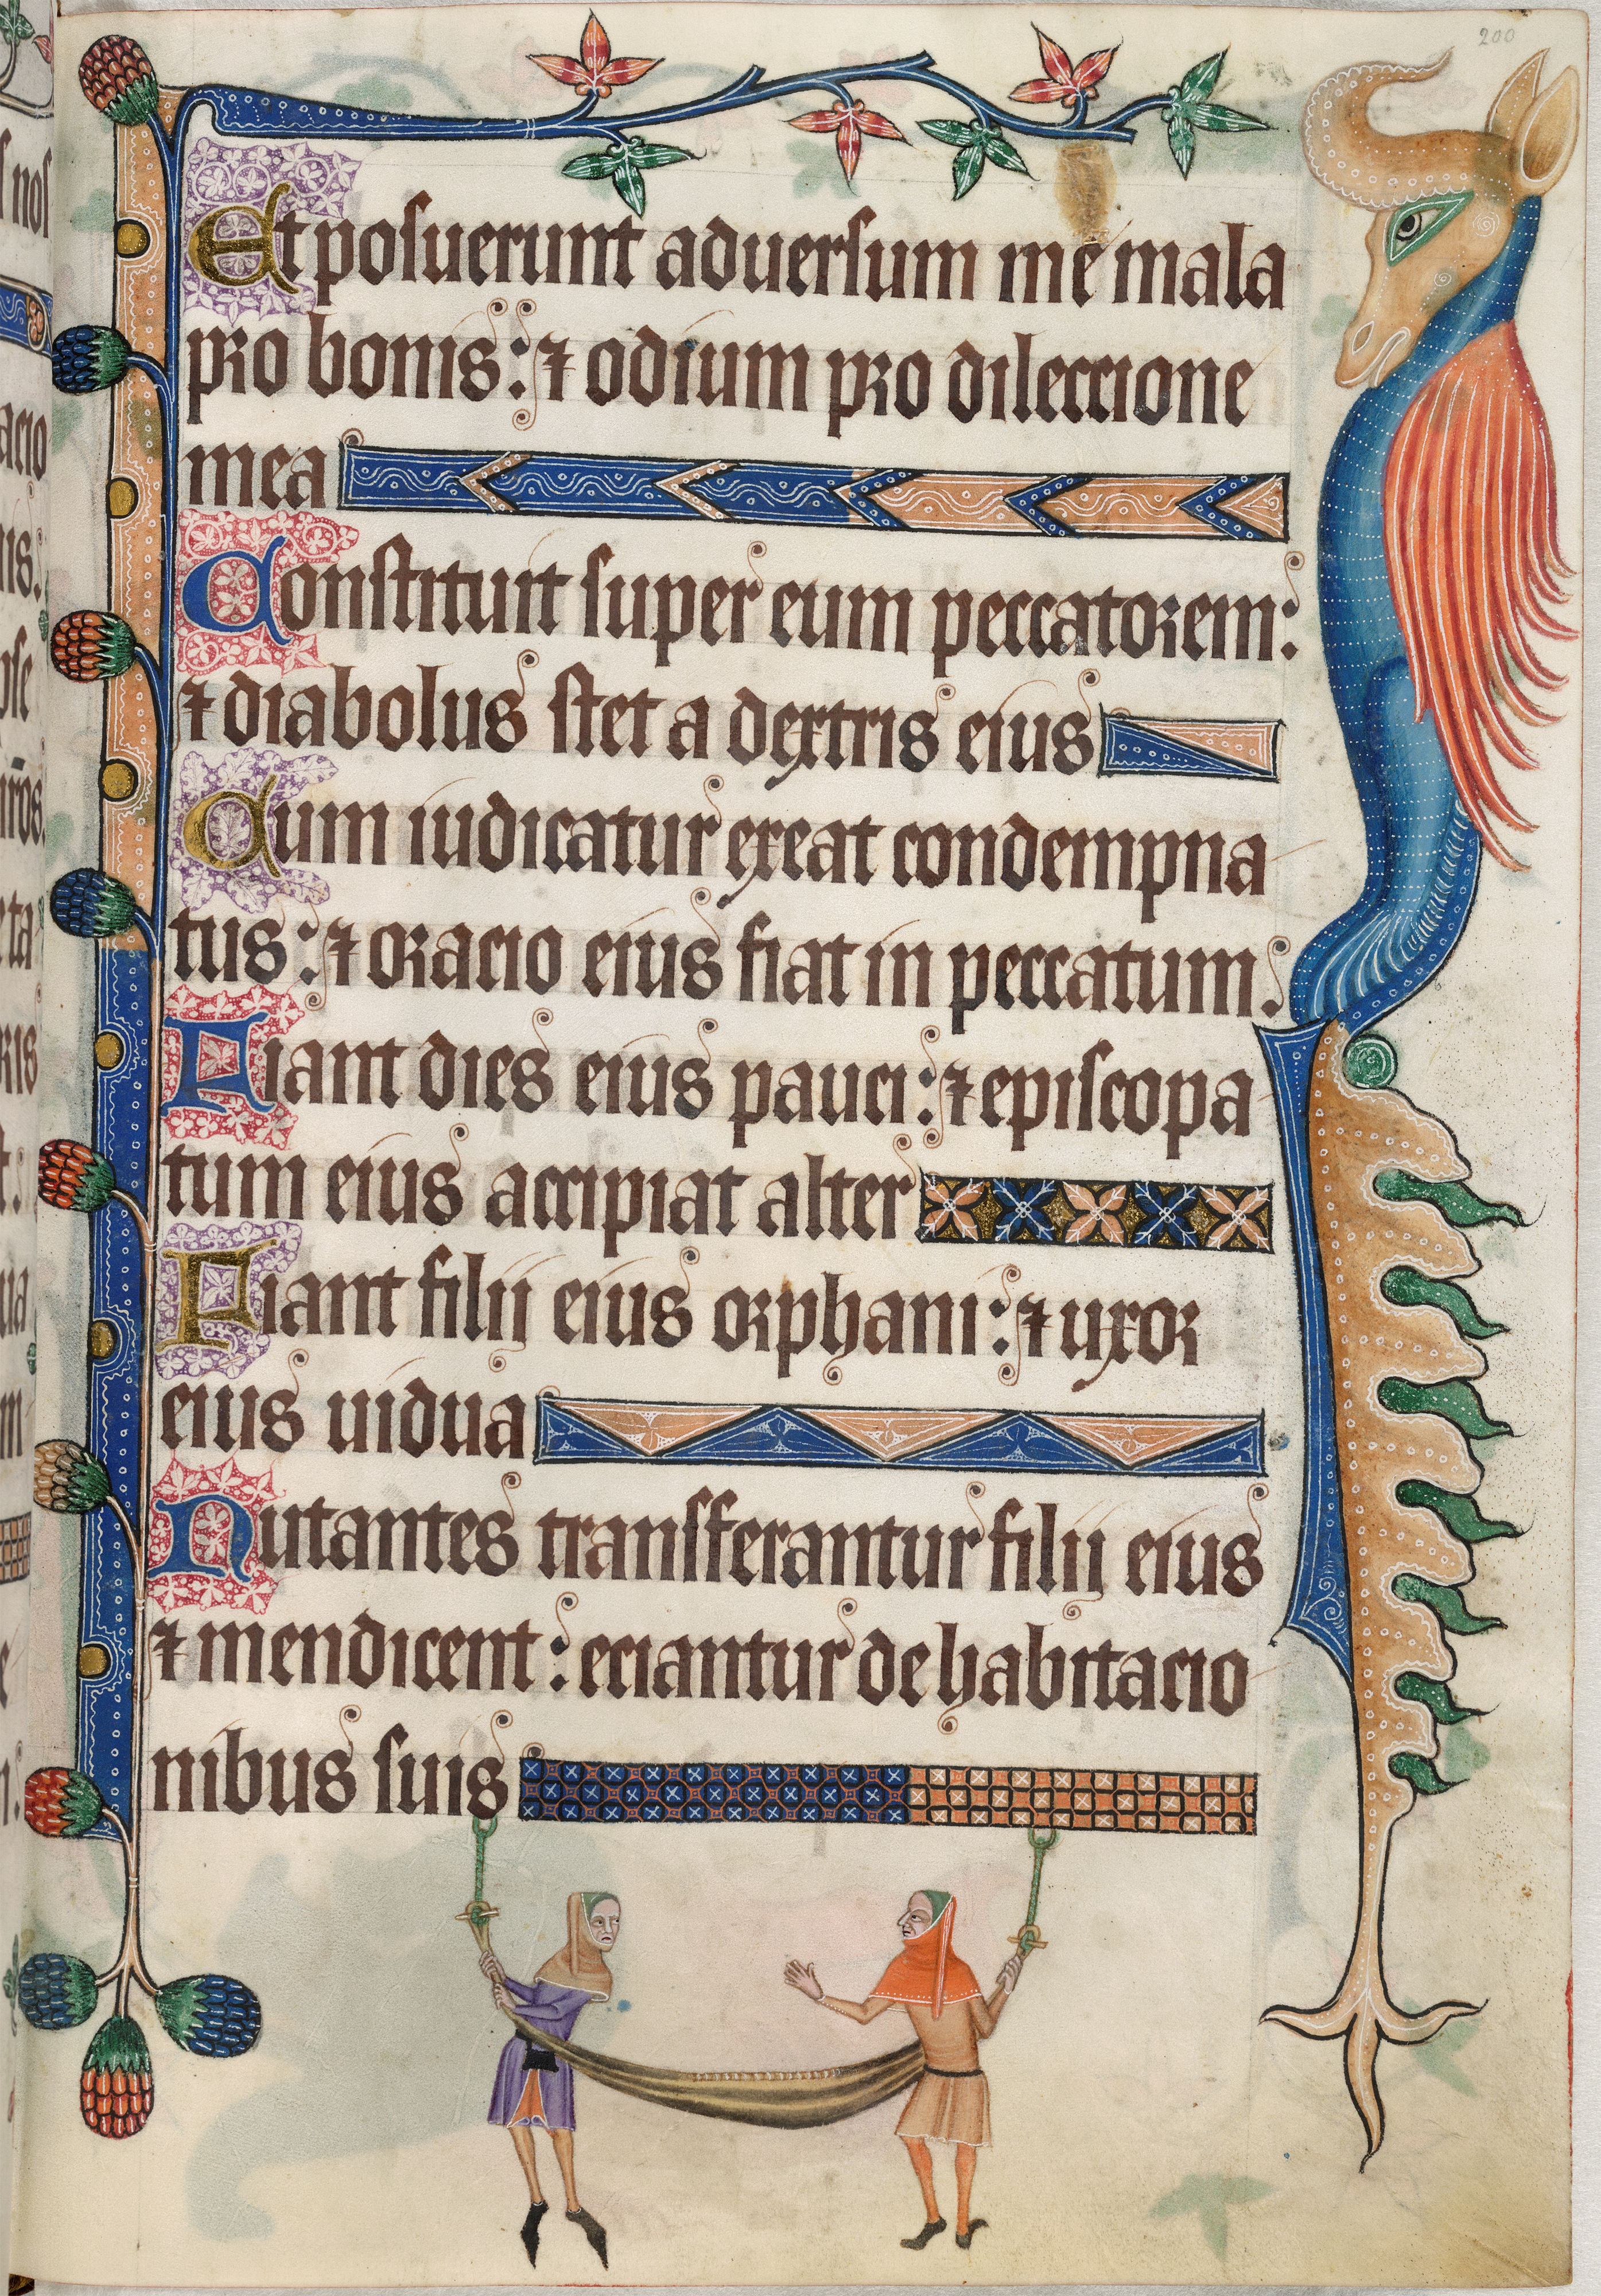 200
Et posuerunt aduersum me mala
pro bonis: ⁊ odium pro dileccione
mea
Constituit super eum peccatorem:
⁊ diabolus stet a dextris eius
Cum iudicatur exeat condempna
tus: ⁊ oracio eius fiat in peccatum.
Fiant dies eius pauci: ⁊ episcopa
tum eius accipiat alter
Fiant filii eius orphani: ⁊ uxor
eius uidua
Nutantes transferantur filii eius
⁊ mendicent: eciantur de habitacio
nibus suis